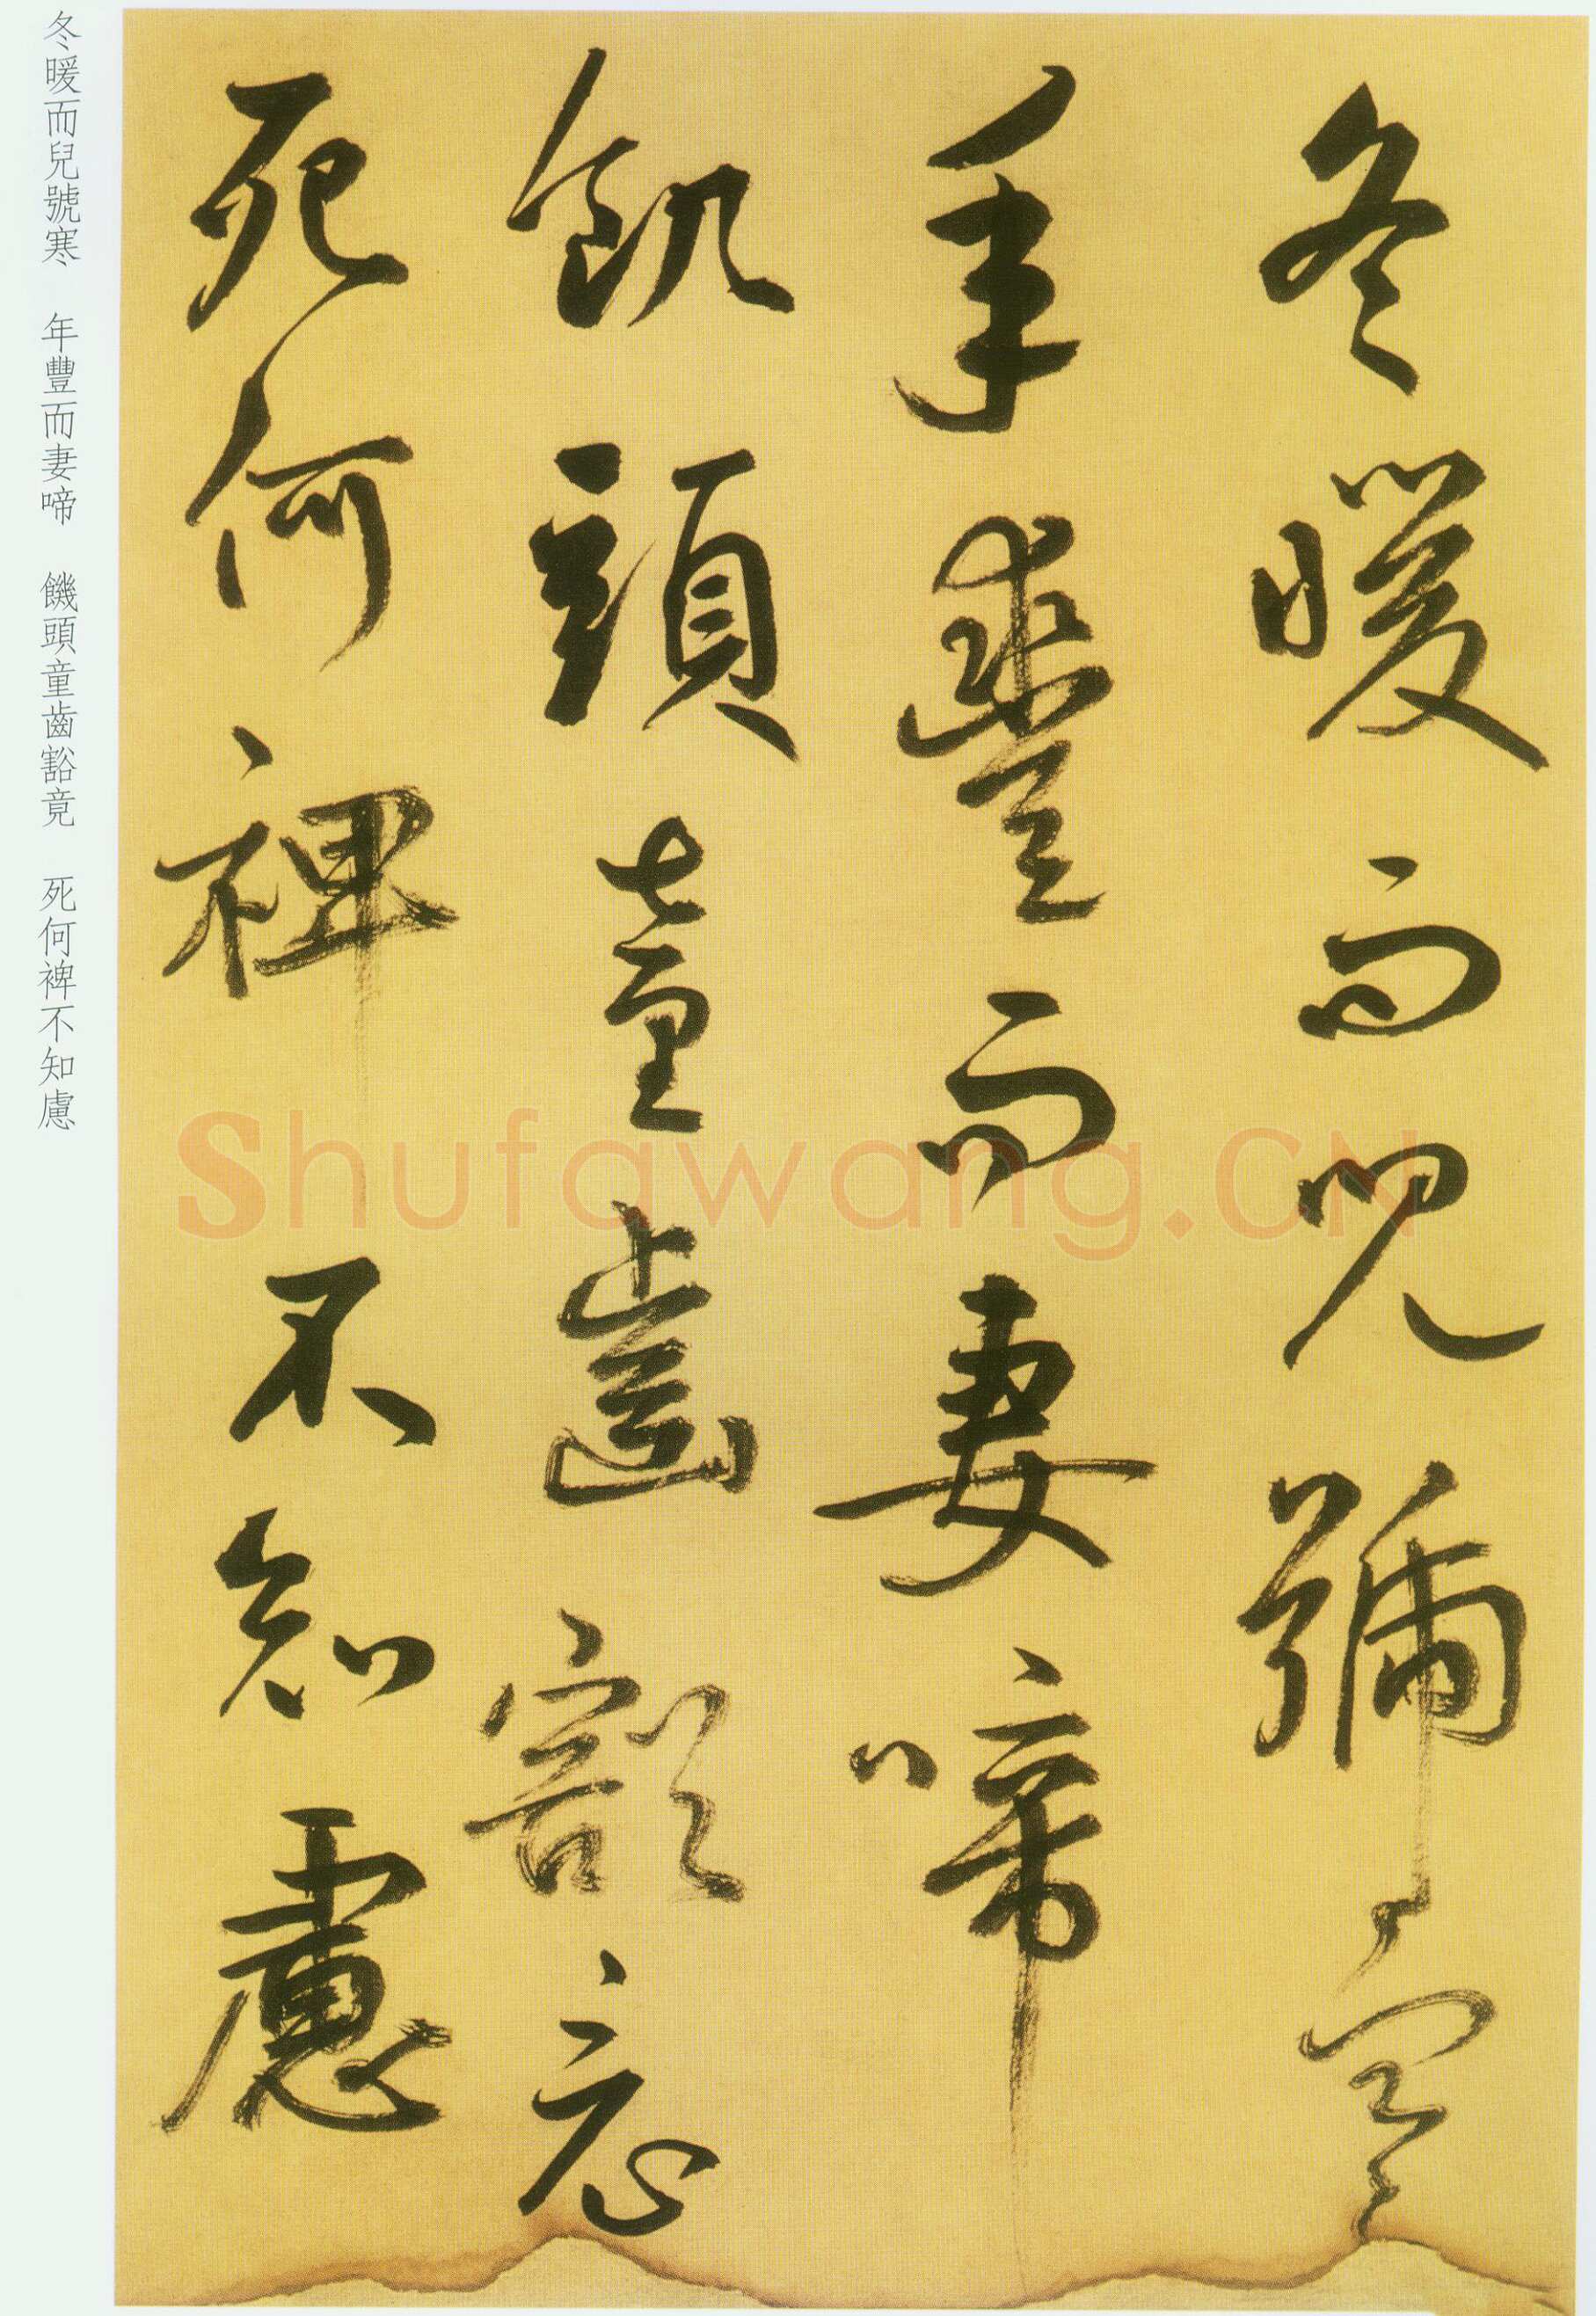 冬暖而兒號寒
年豐而妻啼
飢頭童齒豁竟
死何裨不知慮
冬暖而兒號寒 年豐而妻啼 饑頭童齒豁竟 死何裨不知慮
Shufawang.CN